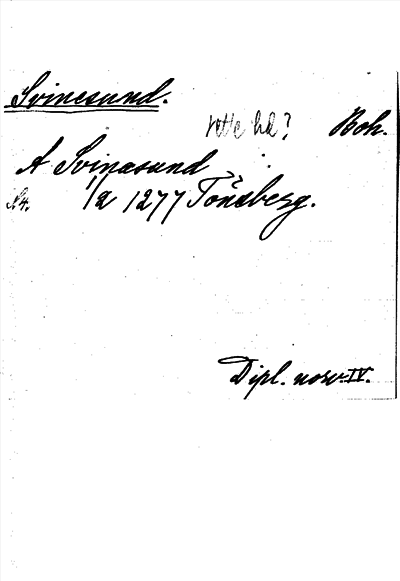 Svinesund.
Boh.
A Svinasund
1/2 1277 Tönsberg.
Dipl. norv. IV.